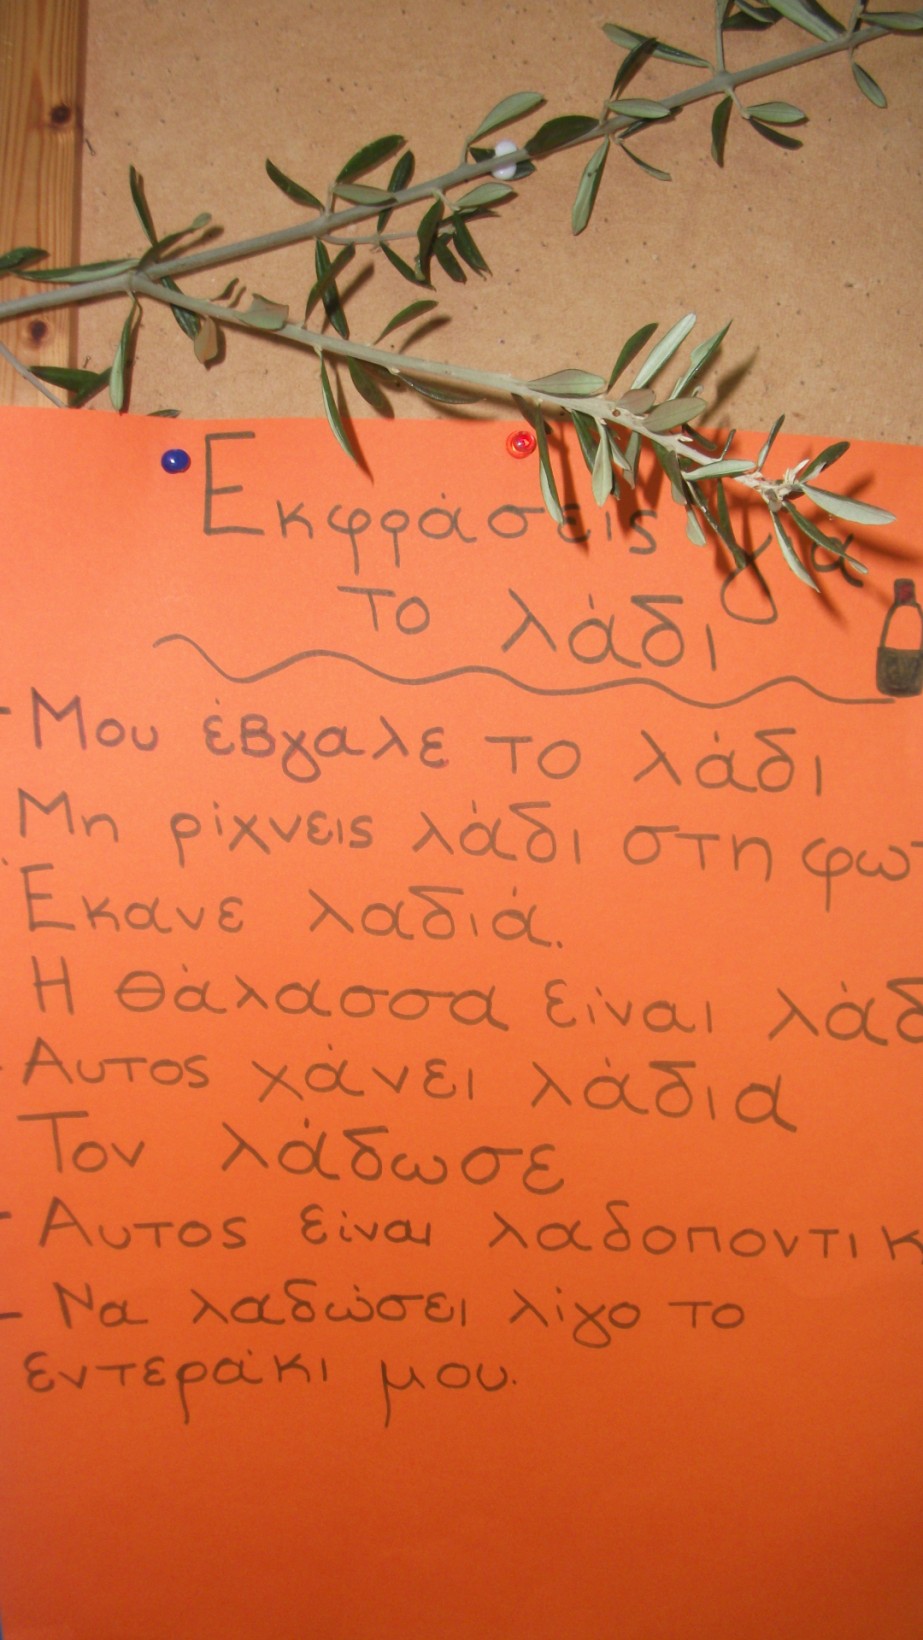 Εκφράσεις για
το λάδι
- Μου έβγαλε το λάδι
Μη ρίχνεις λάδι στη φωτ
Έκανε λαδιά.
Η θάλασσα είναι λάδ
- Αυτος χάνει λάδια
Τον λάδωσε
- Αυτος είναι λαδοποντικ
- Να λαδώσει λίγο το
εντεράκι μου.